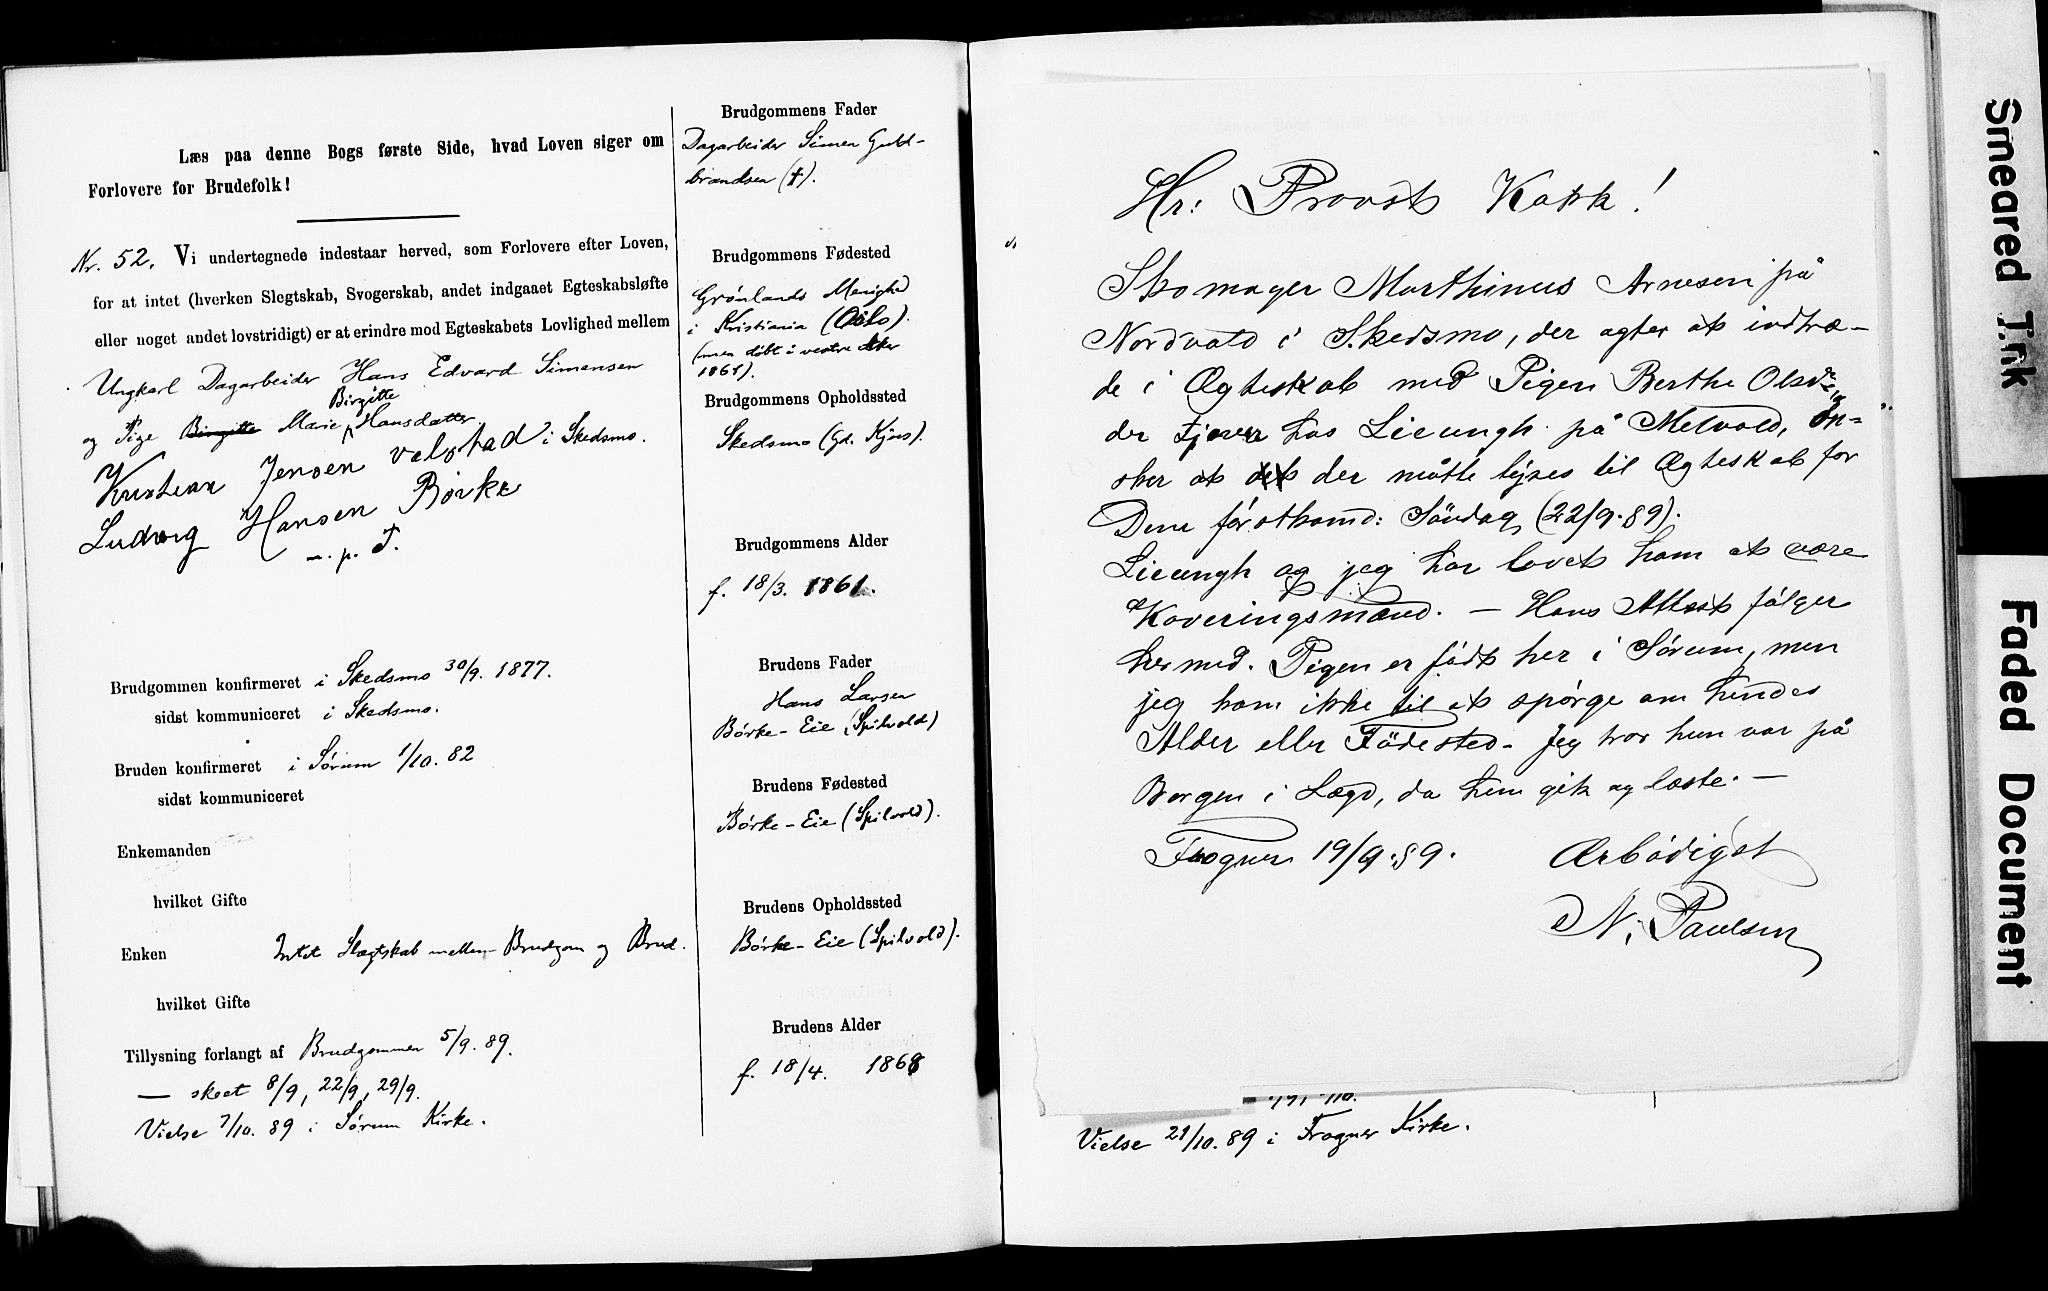 Læs paa denne Bogs første Side, hvad Loven siger om
Forlovere for Brudefolk!
Nr. 52. Vi undertegnede indestaar herved, som Forlovere efter Loven,
for at intet (hverken Slegtskab, Svogerskab, andet indgaaet Egteskabsløfte
eller noget andet lovstridigt) er at erindre mod Egteskabets Lovlighed mellem
Ungkarl Dagarbeider Hans Edvard Simensen
Birgitte
og Pige Birgitte Marie Hansdatter
Kristian Jensen valstad i Skedsmo.
Ludvig Hansen Børke
m. p. P.
Brudgommen konfirmeret i Skedsmo 30/9. 1877.
sidst kommuniceret i Skedsmo.
Bruden konfirmeret i Sørum 1/10. 82
sidst kommuniceret
Enkemanden
hvilket Gifte
Enken Intet Slægtskab mellem Brudgom og Brud.
hvilket Gifte
Tillysning forlangt af Brudgommen 5/9. 89.
— skeet 8/9, 22/9, 29/9.
Vielse 7/10. 89 i Sørum Kirke.
Brudgommens Fader
Dagarbeider Simen Guld-
brandsen (†).
Brudgommens Fødested
Grønlands Menighed
i Kristiania (Oslo).
(men døbt i vestre Aker
1861).
Brudgommens Opholdssted
Skedsmo (Gd. Kjus).
Brudgommens Alder
f. 18/3. 1861.
Brudens Fader
Hans Larsen
Børke-Eie (Spilvold)
Brudens Fødested
Børke-Eie (Spilvold).
Brudens Opholdssted
Børke-Eie (Spilvold).
Brudens Alder
f. 18/4. 1868
Hr: Provst Kopk!
Skomager Marthinus Arnesen på
Nordvold i Skedsmo, der agter at indtræ-
de i Ægteskab med Pigen Berthe Olsd.
der tjener hos Lieungh på Melvold, øn-
sker at det der måtte lyses til Ægteskab for
Dem førstkomd: Søndag (22/9.89).
Lieungh og jeg har lovet ham at være
Kaveringsmænd. — Hans Attest følger
hermed. Pigen er født her i Sørum, men
jeg kom ikke til at spørge om hendes
Alder eller Fødested. Jeg tror hun var på
Borgen i Lægd, da hun gik og læste. —
Frogner 19/9.89. Ærbødigst
N. Paulsen
Vielse 21/10.89 i Frogner Kirke.
Smeared Ink
Faded Document